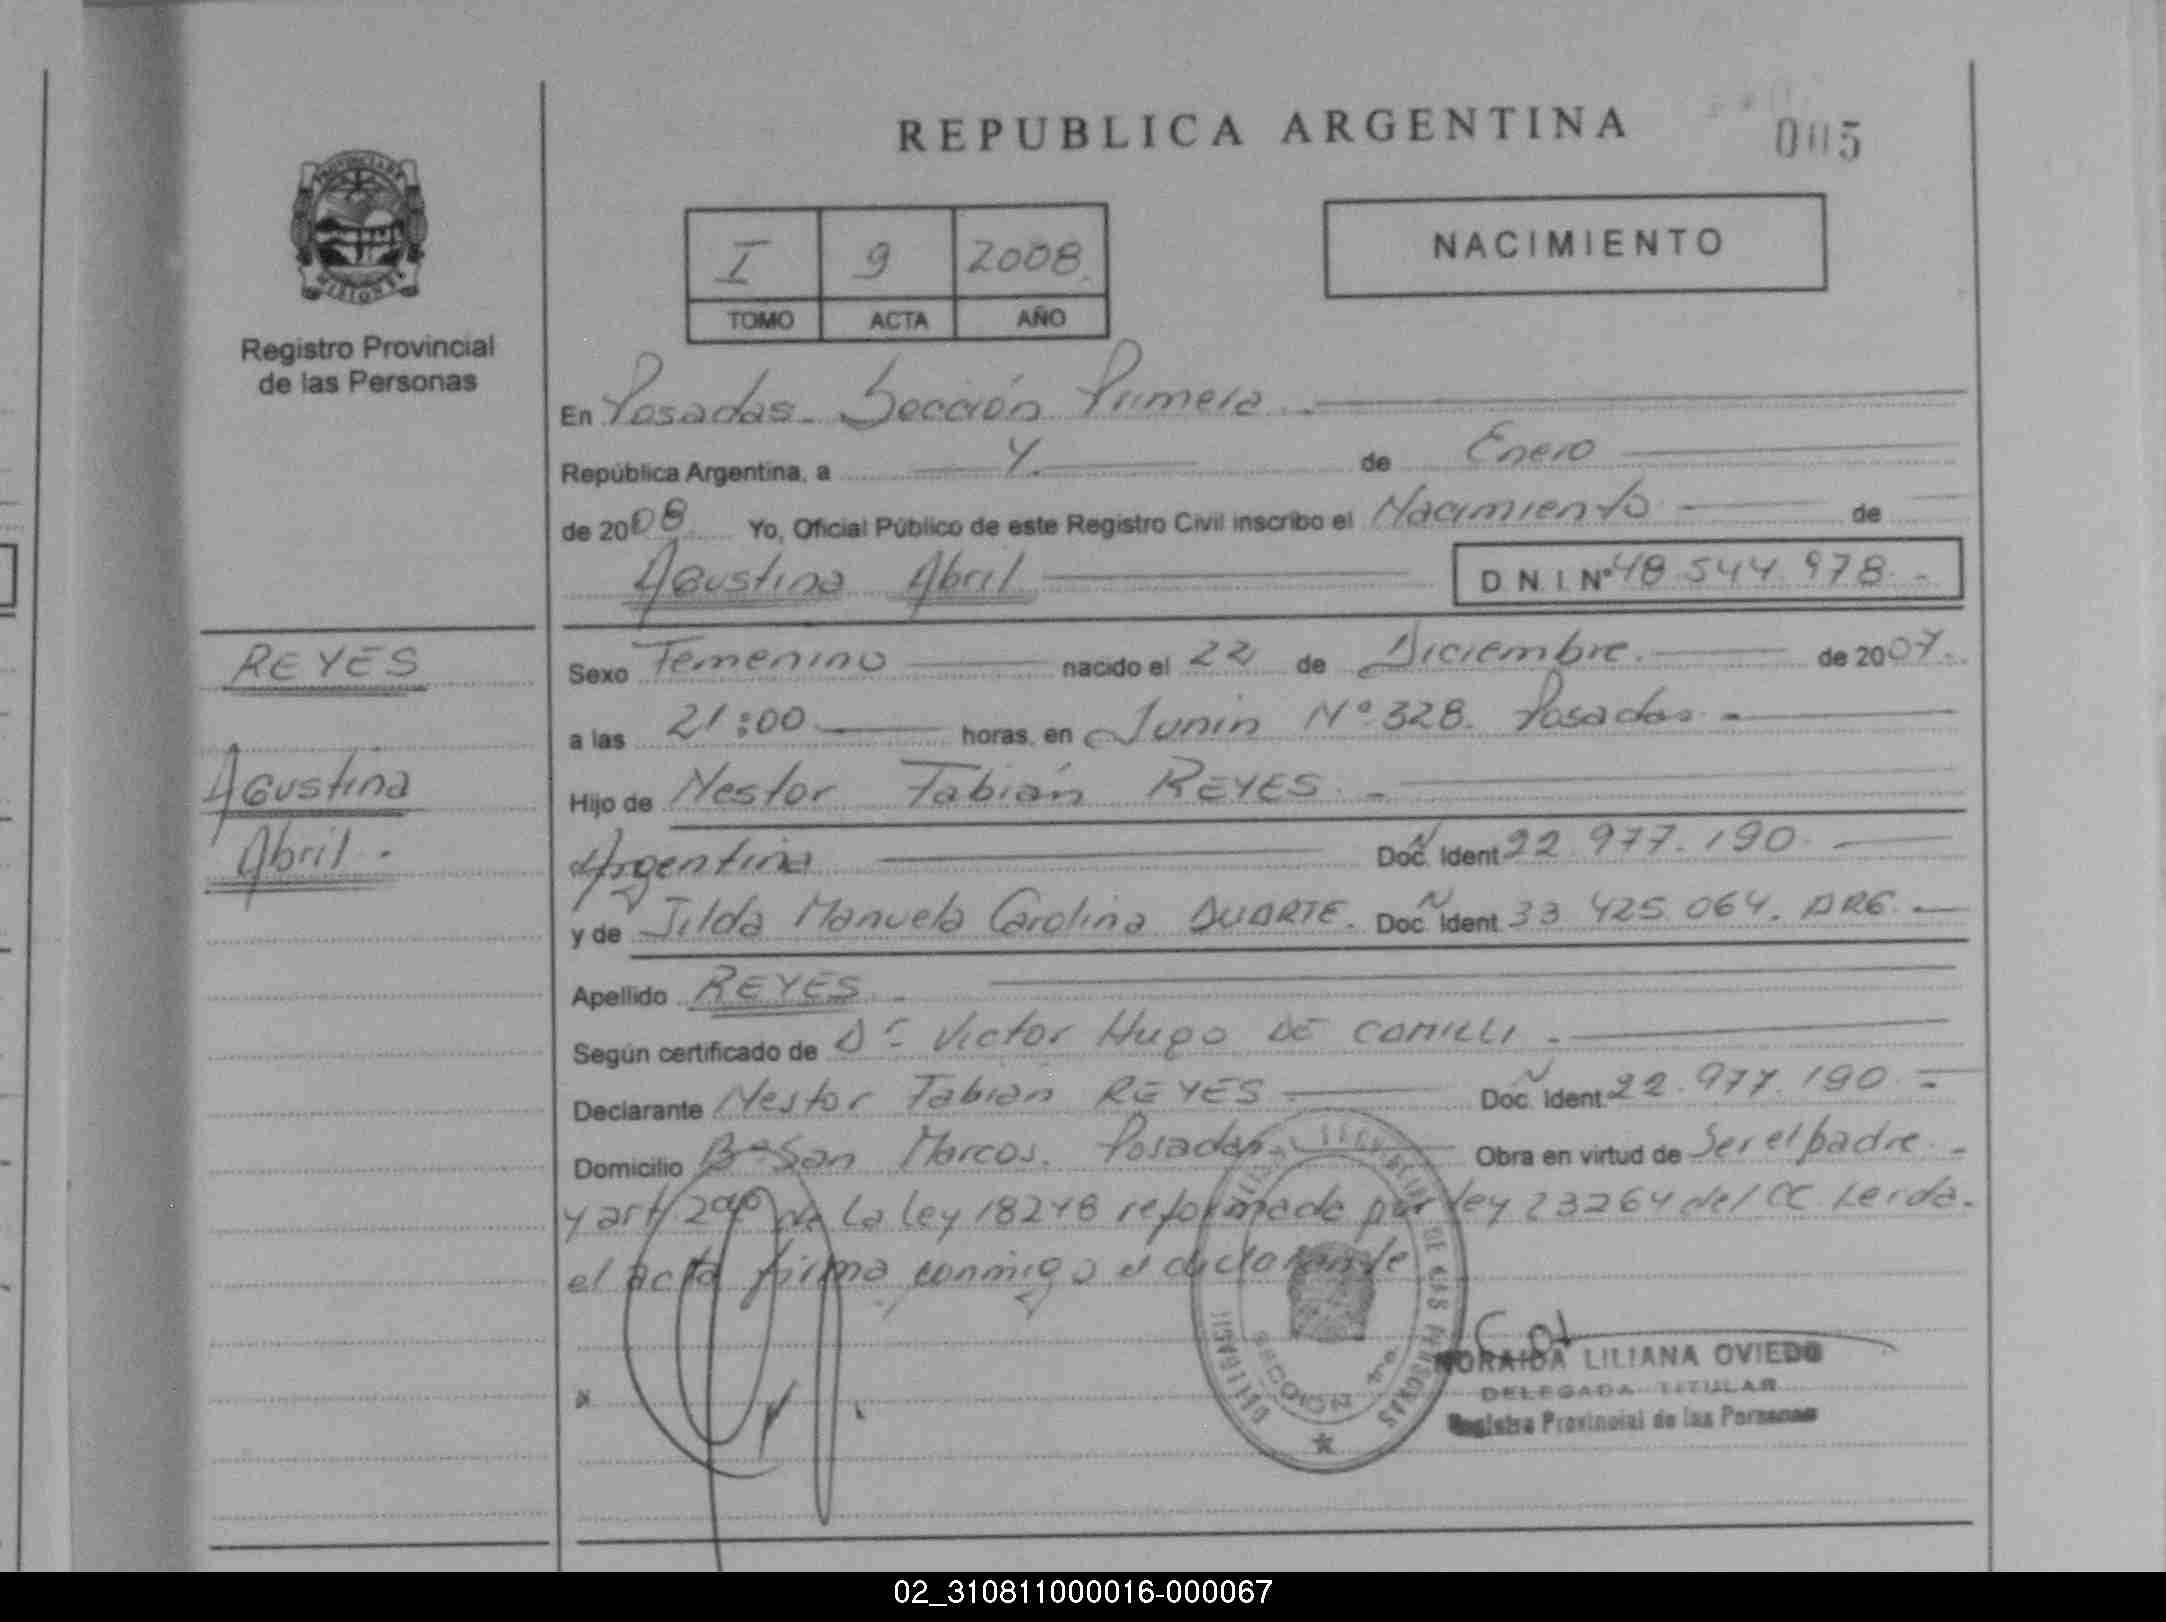 REPUBLICA ARGENTINA
005
PROVINCIA DE
MISIONES
Registro Provincial
de las Personas
I 9 2008
TOMO ACTA AÑO
NACIMIENTO
En Posadas. Sección Primera.
República Argentina, a 4 de Enero
de 2008 Yo, Oficial Público de este Registro Civil inscribo el Nacimiento de
Agustina Abril D.N.I. Nº 48.544.978.-
REYES
Agustina
Abril.
Sexo Femenino nacido el 22 de Diciembre. de 2007.
a las 21:00 horas, en Junin Nº 328. Posadas.-
Hijo de Nestor Fabián REYES.-
Argentina Doc. Ident N 22.977.190.
y de Jilda Manuela Carolina DUARTE. Doc. Ident N 33.425.064. ARG.
Apellido REYES.
Según certificado de Dr. Victor Hugo DE CAMILLI.
Declarante Nestor Fabian REYES Doc. Ident. N 22.977.190.=
Domicilio Bº San Marcos. Posadas. Obra en virtud de Ser el padre.-
y art 2do de la Ley 18248 reformada por ley 23264 del CC. Leida.
el acta firma conmigo el declarante
SECCION 1ra
DE LAS PERSONAS
NORAIDA LILIANA OVIEDO
DELEGADA TITULAR
Registro Provincial de las Personas
02_310811000016-000067